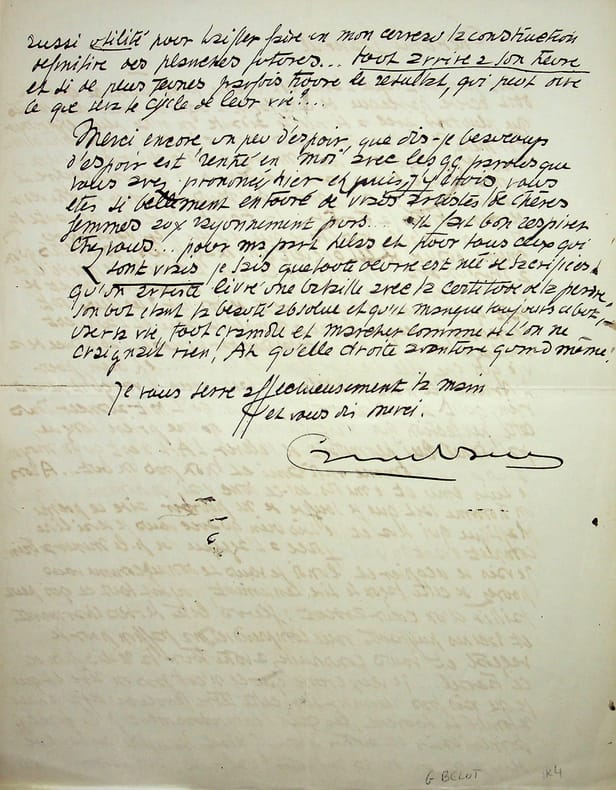 aussi utilité pour laisser faire en mon cerveau la construction
définitive des planches futures... tout arrive a son heure
et si de plus jeunes parfois trouve le resultat, qui peut dire
ce que sera le cycle de leur vie ?...
Merci encore, un peu d'espoir, que dis-je beaucoup
d'espoir est rentré en moi avec les qq paroles que
vous avez prononcé hier et puis, vous
etes si bellement entouré de vrais artistes, de chères
femmes aux rayonnement purs... il fait bon respirer
chez vous... pour ma part helas et pour tous ceux qui
sont vrais, je sais que toute oeuvre est née de sacrifices
qu'un artiste livre une bataille avec la certitude de la perdre
son but étant la beauté absolue et qu'il manque toujours ce but,
user la vie tout et marcher comme si l'on ne
craignait rien ! Ah qu'elle droite aventure quand même !
Je vous serre affectueusement la main
et vous dis merci.
G BELOT 1K4